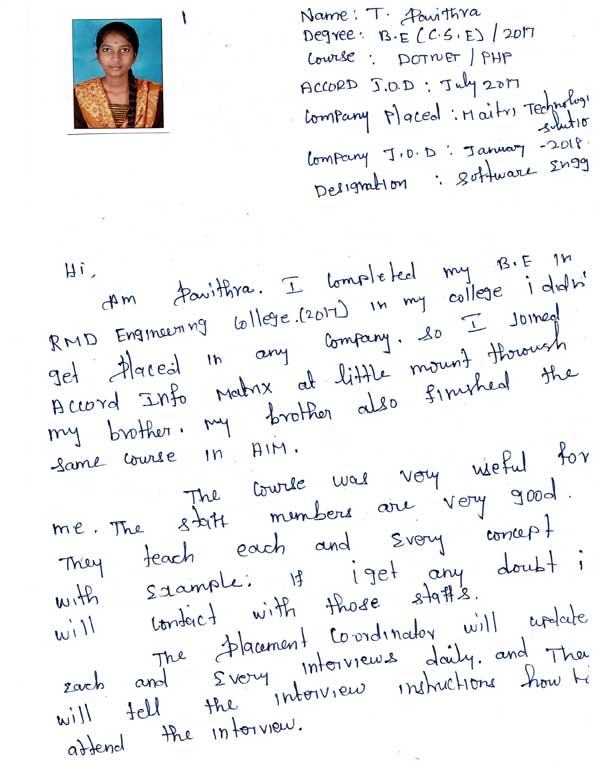 Name: T. Pavithra
Degree: B.E (C.S.E) / 2017
Course : DOTNET / PHP
ACCORD J.O.D : July 2017
Company Placed : Maitri Technologi
Solutio
Company J.O.D : January - 2018.
Designation : Software Engg
Hi,
Am Pavithra. I completed my B.E in
RMD Engineering College.(2017) in my college i didn'
get placed in any company. So I Joined
Accord Info Matrix at little mount through
my brother. My brother also finished the
same course in AIM.
The course was very useful for
me. The staff members are very good.
They teach each and every concept
with Example. If i get any doubt i
will contact with those staffs.
The placement Co-ordinator will update
each and every interviews daily. and They
will tell the interview instructions how t
attend the interview.